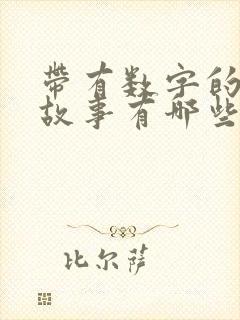 带有数字的
故事有哪些
比尔萨